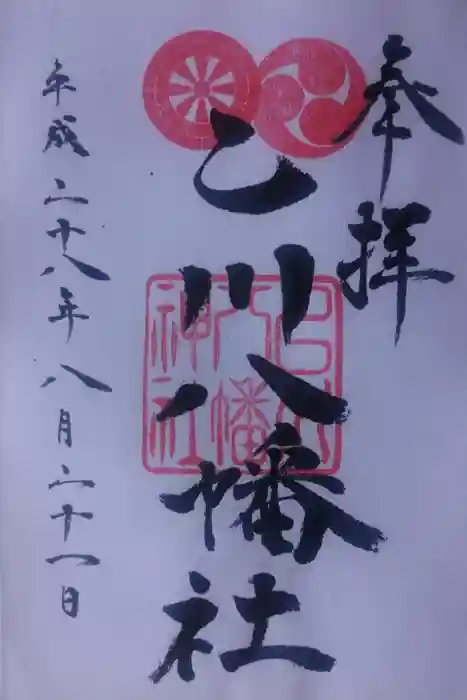 奉拝
乙川八幡社
乙川八幡神社
平成二十八年八月二十一日